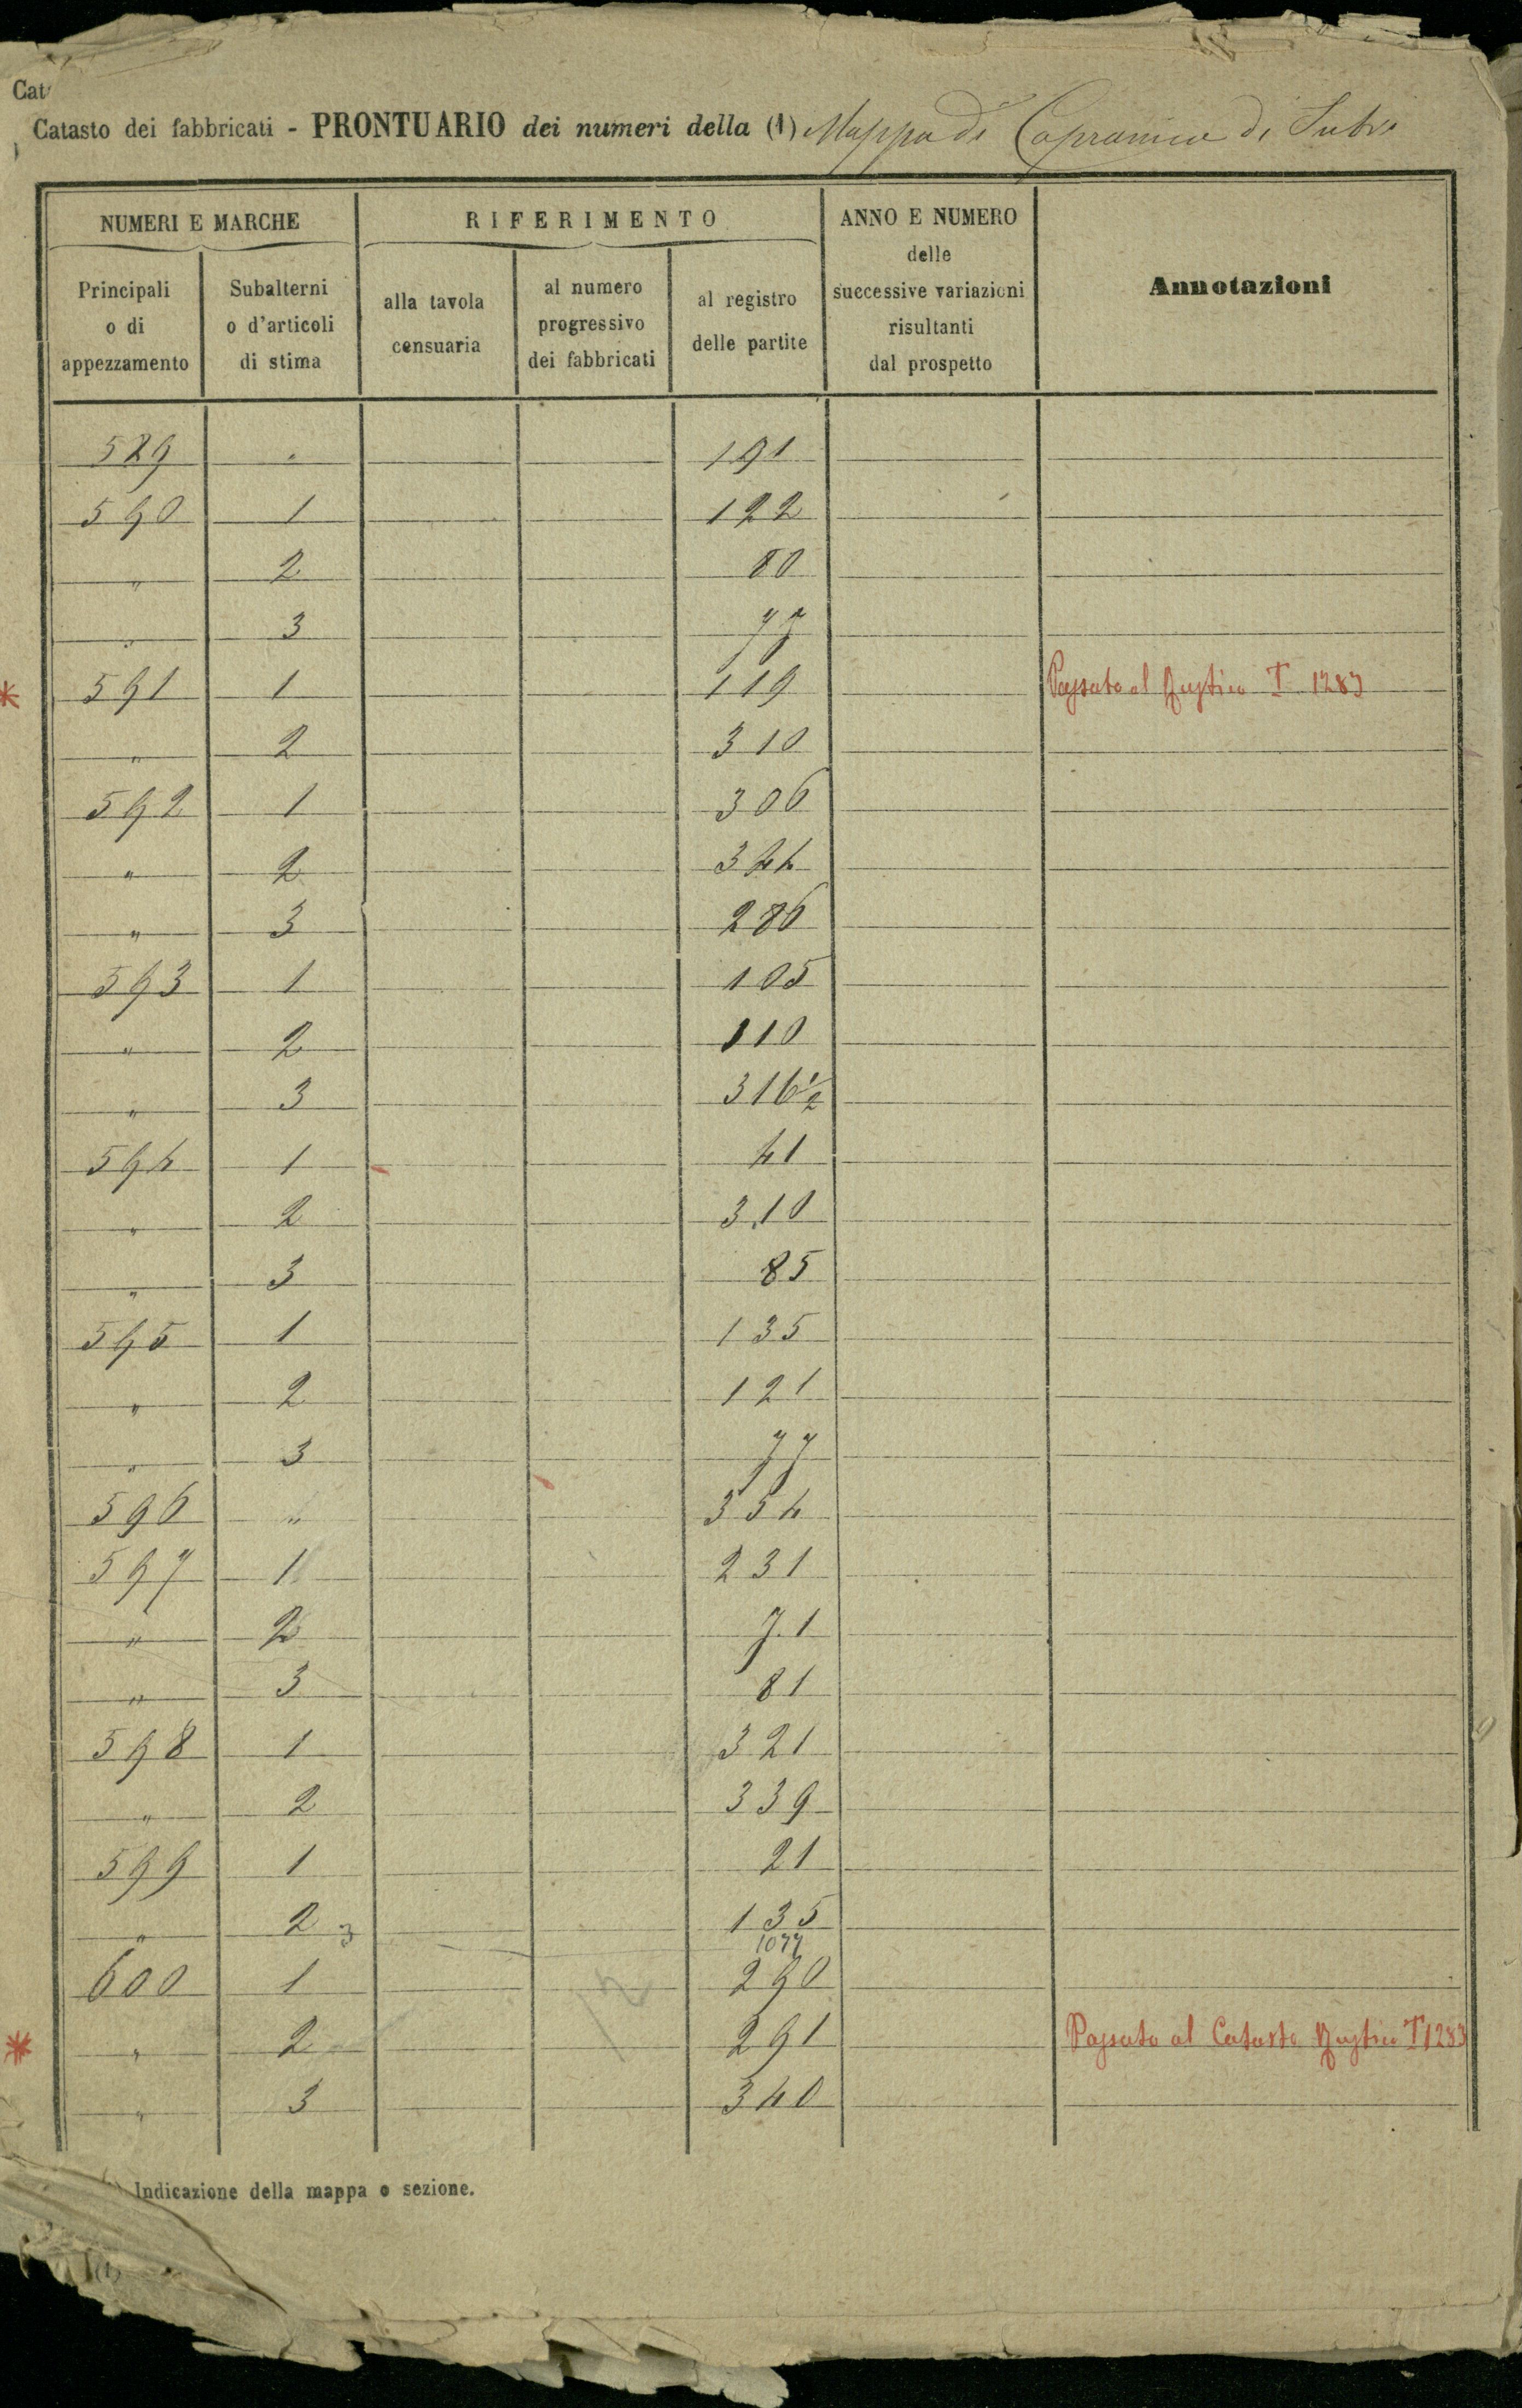 Cat
Catasto dei fabbricati - PRONTUARIO dei numeri della (1) Mappa di Capranica di Sutri
NUMERI E MARCHE
RIFERIMENTO
ANNO E NUMERO
delle
successive variazioni
risultanti
dal prospetto
Annotazioni
Principali
o di
appezzamento
Subalterni
o d'articoli
di stima
alla tavola
censuaria
al numero
progressivo
dei fabbricati
al registro
delle partite
589 " 191
590 1 122
" 2 80
" 3 77
* 591 1 119 Passato al Rustico T 1283
" 2 310
592 1 306
" 2 344
" 3 286
593 1 105
" 2 110
" 3 316 1/2
594 1 41
" 2 310
" 3 85
595 1 135
" 2 121
" 3 77
596 " 354
597 1 231
" 2 71
" 3 81
598 1 321
" 2 339
599 1 21
" 2 3 135
1077
600 1 290
* " 2 291 Passato al Catasto Rustico T 1283
" 3 340
Indicazione della mappa o sezione.
(1)